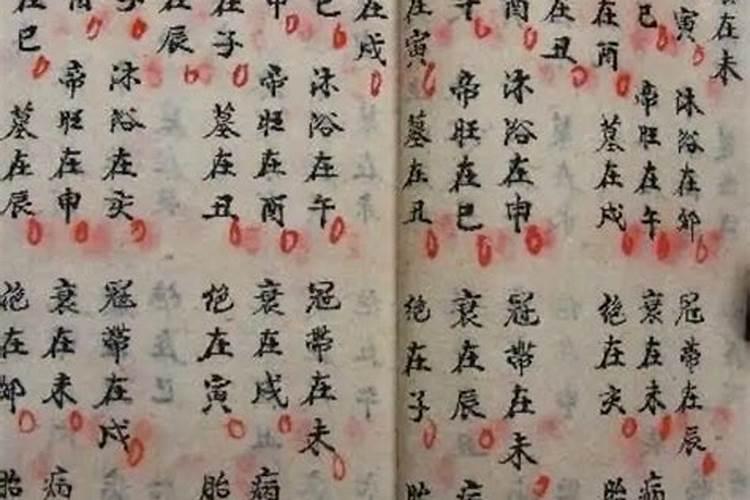 在未
寅
巳
在酉
在丑
酉
午
在寅
在戌
巳
申
在子
在辰
在巳
沐浴在卯
帝旺在午
墓在戌
沐浴在申
帝旺在巳
墓在丑
沐浴在午
帝旺在酉
墓在丑
沐浴在亥
帝旺在申
墓在辰
冠帶在辰
衰在未
絶在亥
冠帶在未
衰在辰
絶在子
冠帶在未
衰在戌
絶在寅
冠帶在戌
衰在未
絶在卯
病
胎
病
胎
病
胎
病
胎